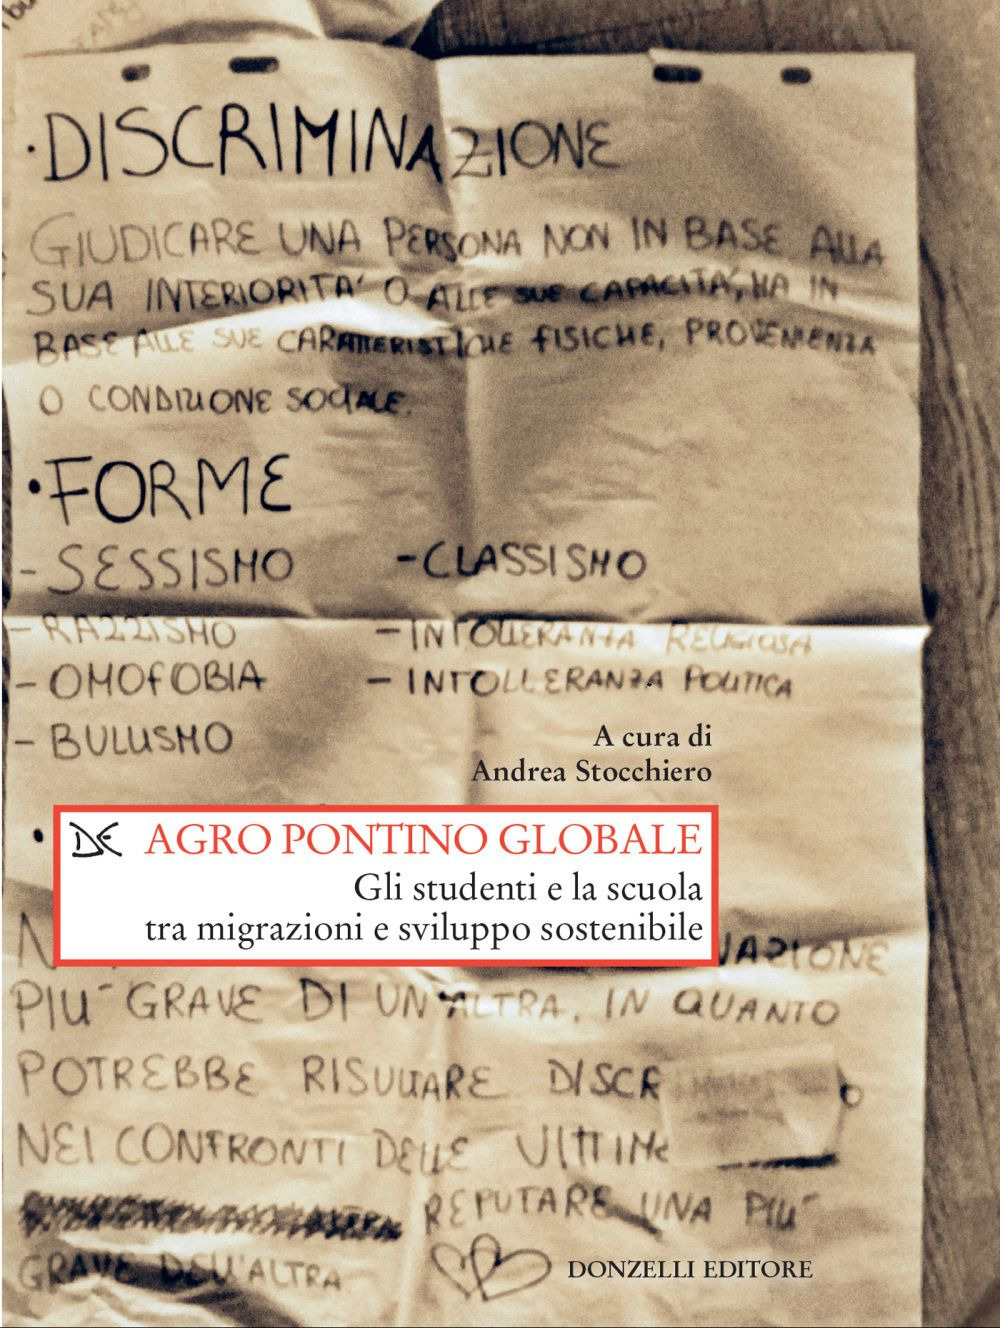 · DISCRIMINAZIONE
GIUDICARE UNA PERSONA NON IN BASE ALLA
SUA INTERIORITA' O ALLE SUE CAPACITA', MA IN
BASE ALLE SUE CARATTERISTICHE FISICHE, PROVENIENZA
O CONDIZIONE SOCIALE.
· FORME
- SESSISMO
- CLASSISMO
- RAZZISMO
- INTOLLERANZA RELIGIOSA
- OMOFOBIA
- INTOLLERANZA POLITICA
- BULLISMO
A cura di
Andrea Stocchiero
DE AGRO PONTINO GLOBALE
Gli studenti e la scuola
tra migrazioni e sviluppo sostenibile
N
AZIONE
PIU' GRAVE DI UN'ALTRA, IN QUANTO
POTREBBE RISULTARE DISCR
NEI CONFRONTI DELLE VITTIME
REPUTARE UNA PIU'
GRAVE DELL'ALTRA
DONZELLI EDITORE